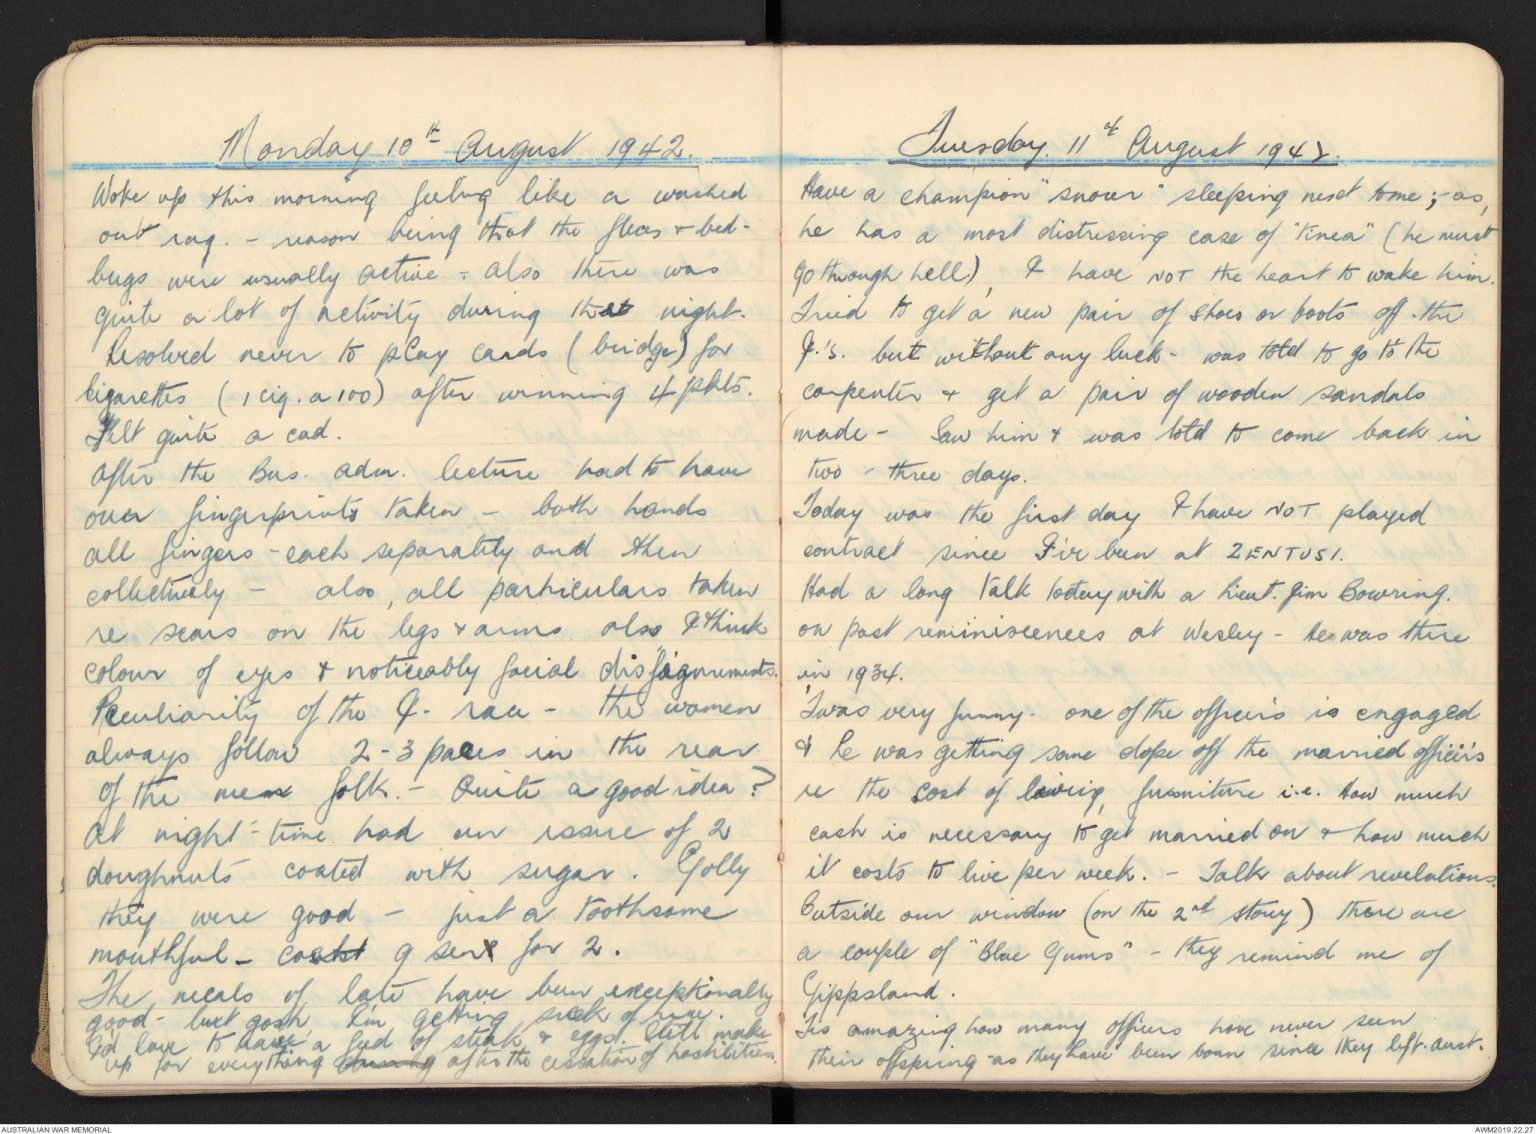 Monday 10th August 1942.
Woke up this morning feeling like a washed
out rag. - reason being that the fleas & bed-
bugs were usually active - also there was
quite a lot of activity during that night.
Resolved never to play cards (bridge) for
Cigarettes (1 cig. a 100) after winning 4 pkts.
Felt quite a cad.
After the Bus. adm. lecture had to have
our fingerprints taken - both hands
all fingers - each separately and then
collectively - also, all particulars taken
re scars on the legs & arms also I think
colour of eyes & noticeably facial disfigurements.
Peculiarity of the J. race - the women
always follow 2-3 paces in the rear
of the men folk. - Quite a good idea?
At night-time had an issue of 2
doughnuts coated with sugar. Golly
they were good - just a toothsome
mouthful - cost 9 sen for 2.
The meals of late have been exceptionally
good - but gosh, I'm getting sick of rice.
I'd love to have a feed of steak & eggs. Will make
up for everything during after the cessation of hostilities.
Tuesday 11th August 1942.
Have a champion "snorer" sleeping next to me; - as,
he has a most distressing case of "Tinea" (he must
go through hell), I have NOT the heart to wake him.
Tried to get a new pair of shoes or boots off the
J.'s. but without any luck - was told to go to the
carpenter & get a pair of wooden sandals
made - Saw him & was told to come back in
two - three days.
Today was the first day I have NOT played
contract since I've been at ZENTUSI.
Had a long talk today with a Lieut. Jim Bowring.
on past reminiscences at Wesley - he was there
in 1934.
Twas very funny - one of the officers is engaged
& he was getting some dope off the married officers
re the cost of living, furniture i.e. How much
cash is necessary to get married on & how much
it costs to live per week. - Talk about revelations.
Outside our window (on the 2nd storey) there are
a couple of "Blue Gums" - they remind me of
Gippsland.
Tis amazing how many officers have never seen
their offspring - as they have been born since they left Aust.
AUSTRALIAN WAR MEMORIAL
AWM2019.22.27